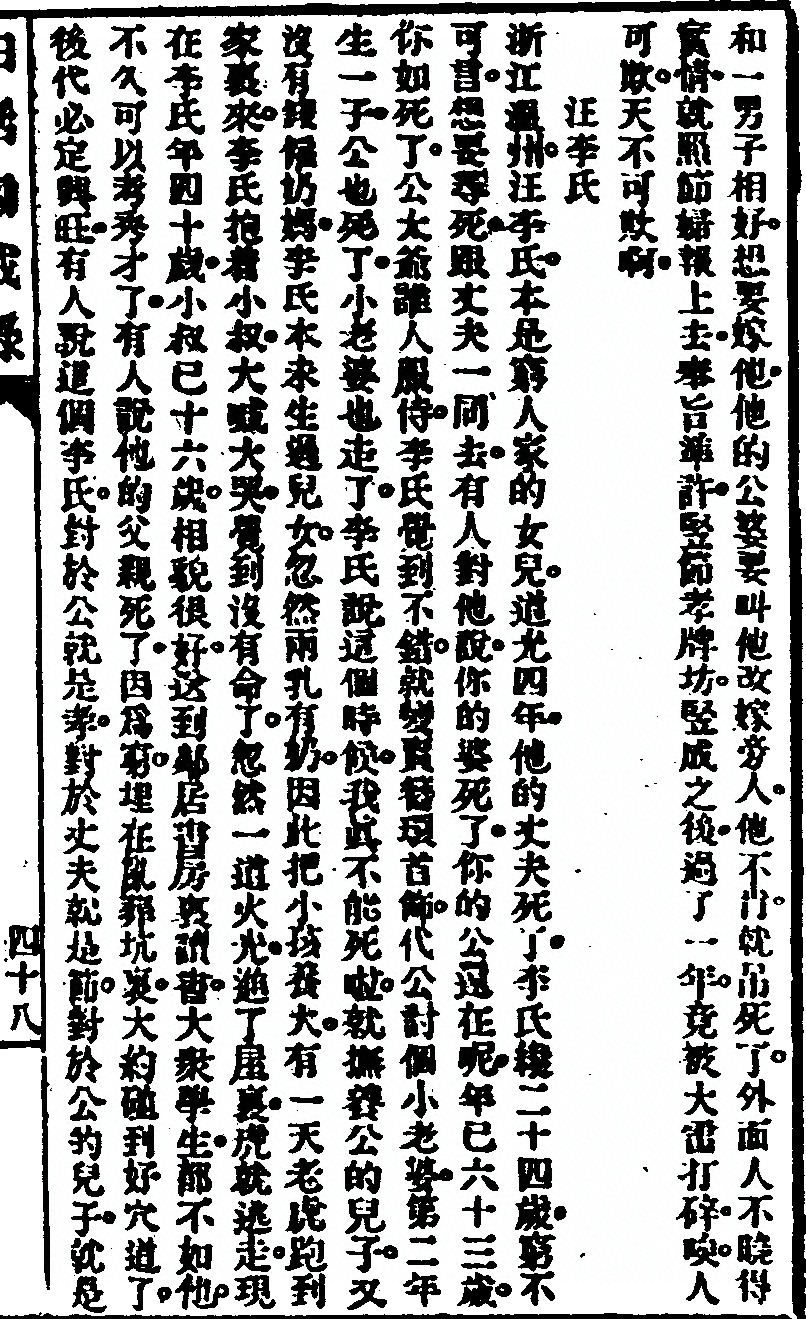 和一男子相好想要嫁他他的公婆要叫他改嫁旁人他不肯就吊死了外面人不曉得
實情就照節婦報上去奉旨準許竪節孝牌坊竪成之後過了一年竟被大雷打碎唉人
可欺天不可欺啊
汪李氏
浙江溫州汪李氏本是窮人家的女兒道光四年他的丈夫死了李氏纔二十四歲窮不
可言想要尋死跟丈夫一同去有人對他說你的婆死了你的公還在呢年已六十三歲
你如死了公太爺誰人服侍李氏覺到不錯就變賣簪環首飾代公討個小老婆第二年
生一子公也死了小老婆也走了李氏說這個時候我真不能死啦就撫養公的兒子又
沒有錢僱奶媽李氏本未生過兒女忽然兩乳有奶因此把小孩養大有一天老虎跑到
家裏來李氏抱着小叔大喊大哭覺到沒有命了忽然一道火光進了屋裏虎就逃走現
在李氏年四十歲小叔已十六歲相貌很好送到鄰居書房裏讀書大衆學生都不如他
不久可以考秀才了有人說他的父親死了因爲窮埋在亂葬坑裏大約碰到好穴道了
後代必定興旺有人說這個李氏對於公就是孝對於丈夫就是節對於公的兒子就是
四十八